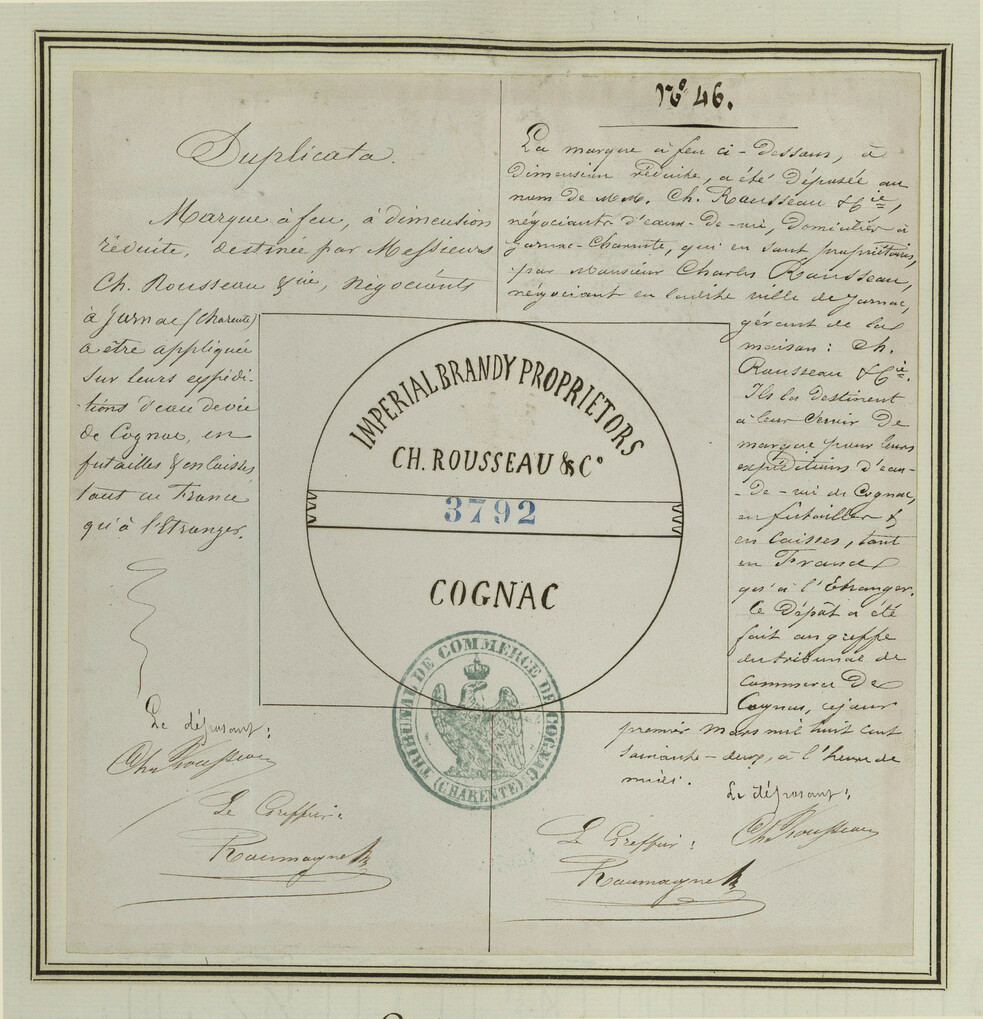 Duplicata.
Marque à feu, à dimension
réduite, destinée par Messieurs
Ch. Rousseau & Cie, Négociants
à Jarnac (Charente)
à être appliquée
sur leurs expédi-
-tions d'eau de vie
de Cognac, en
futailles & en caisses
tant en France
qu'à l'Etranger.
Le déposant:
Ch. Rousseau
Le Greffier:
Roumagne
No 46.
La marque à feu ci-dessous, à
dimension réduite, a été déposée au
nom de MM. Ch. Rousseau & Cie,
négociants d'eaux-de-vie, domiciliés à
Jarnac-Charente, qui en sont propriétaires,
par Monsieur Charles Rousseau,
négociant en ladite ville de Jarnac,
gérant de la
maison: Ch.
Rousseau & Cie.
Ils la destinent
à leur servir de
marque pour leurs
expéditions d'eau-
-de-vie de Cognac,
en futailles &
en caisses, tant
en France
qu'à l'Etranger.
Ce dépôt a été
fait au greffe
du tribunal de
Commerce de
Cognac, ce jour
premier Mars mil huit cent
soixante-deux, à l'heure de
midi.
Le déposant:
Ch. Rousseau
Le Greffier:
Roumagne
IMPERIAL BRANDY PROPRIETORS
CH. ROUSSEAU & Co
3792
COGNAC
TRIBUNAL DE COMMERCE DE COGNAC
(CHARENTE)